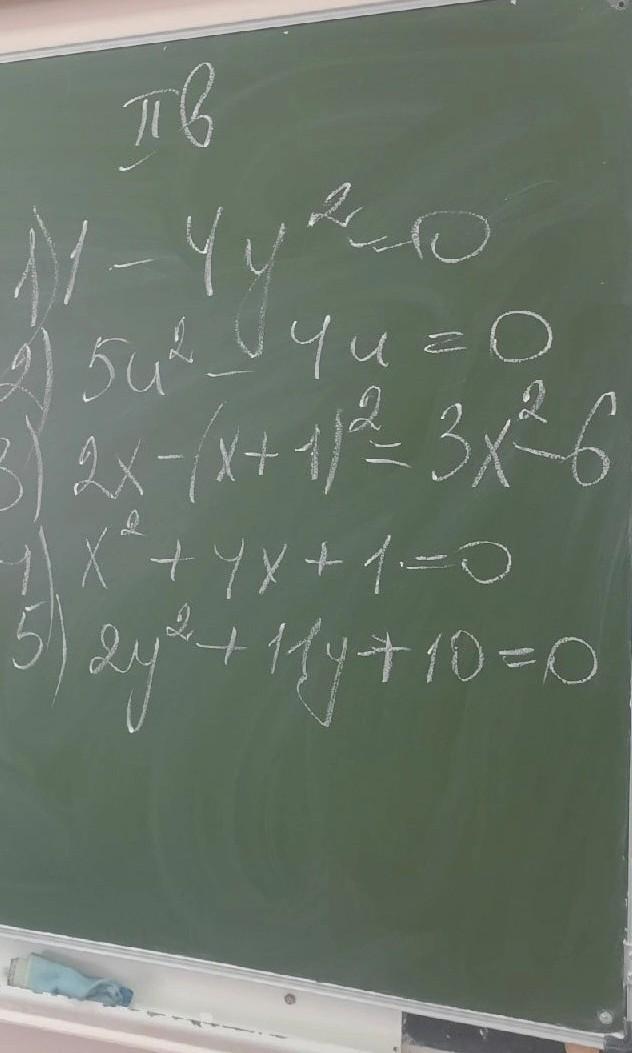 II в
1) 1 - 4y² = 0
2) 5u² - 4u = 0
3) 2x - (x + 1)² = 3x² - 6
4) x² + 4x + 1 = 0
5) 2y² + 11y + 10 = 0